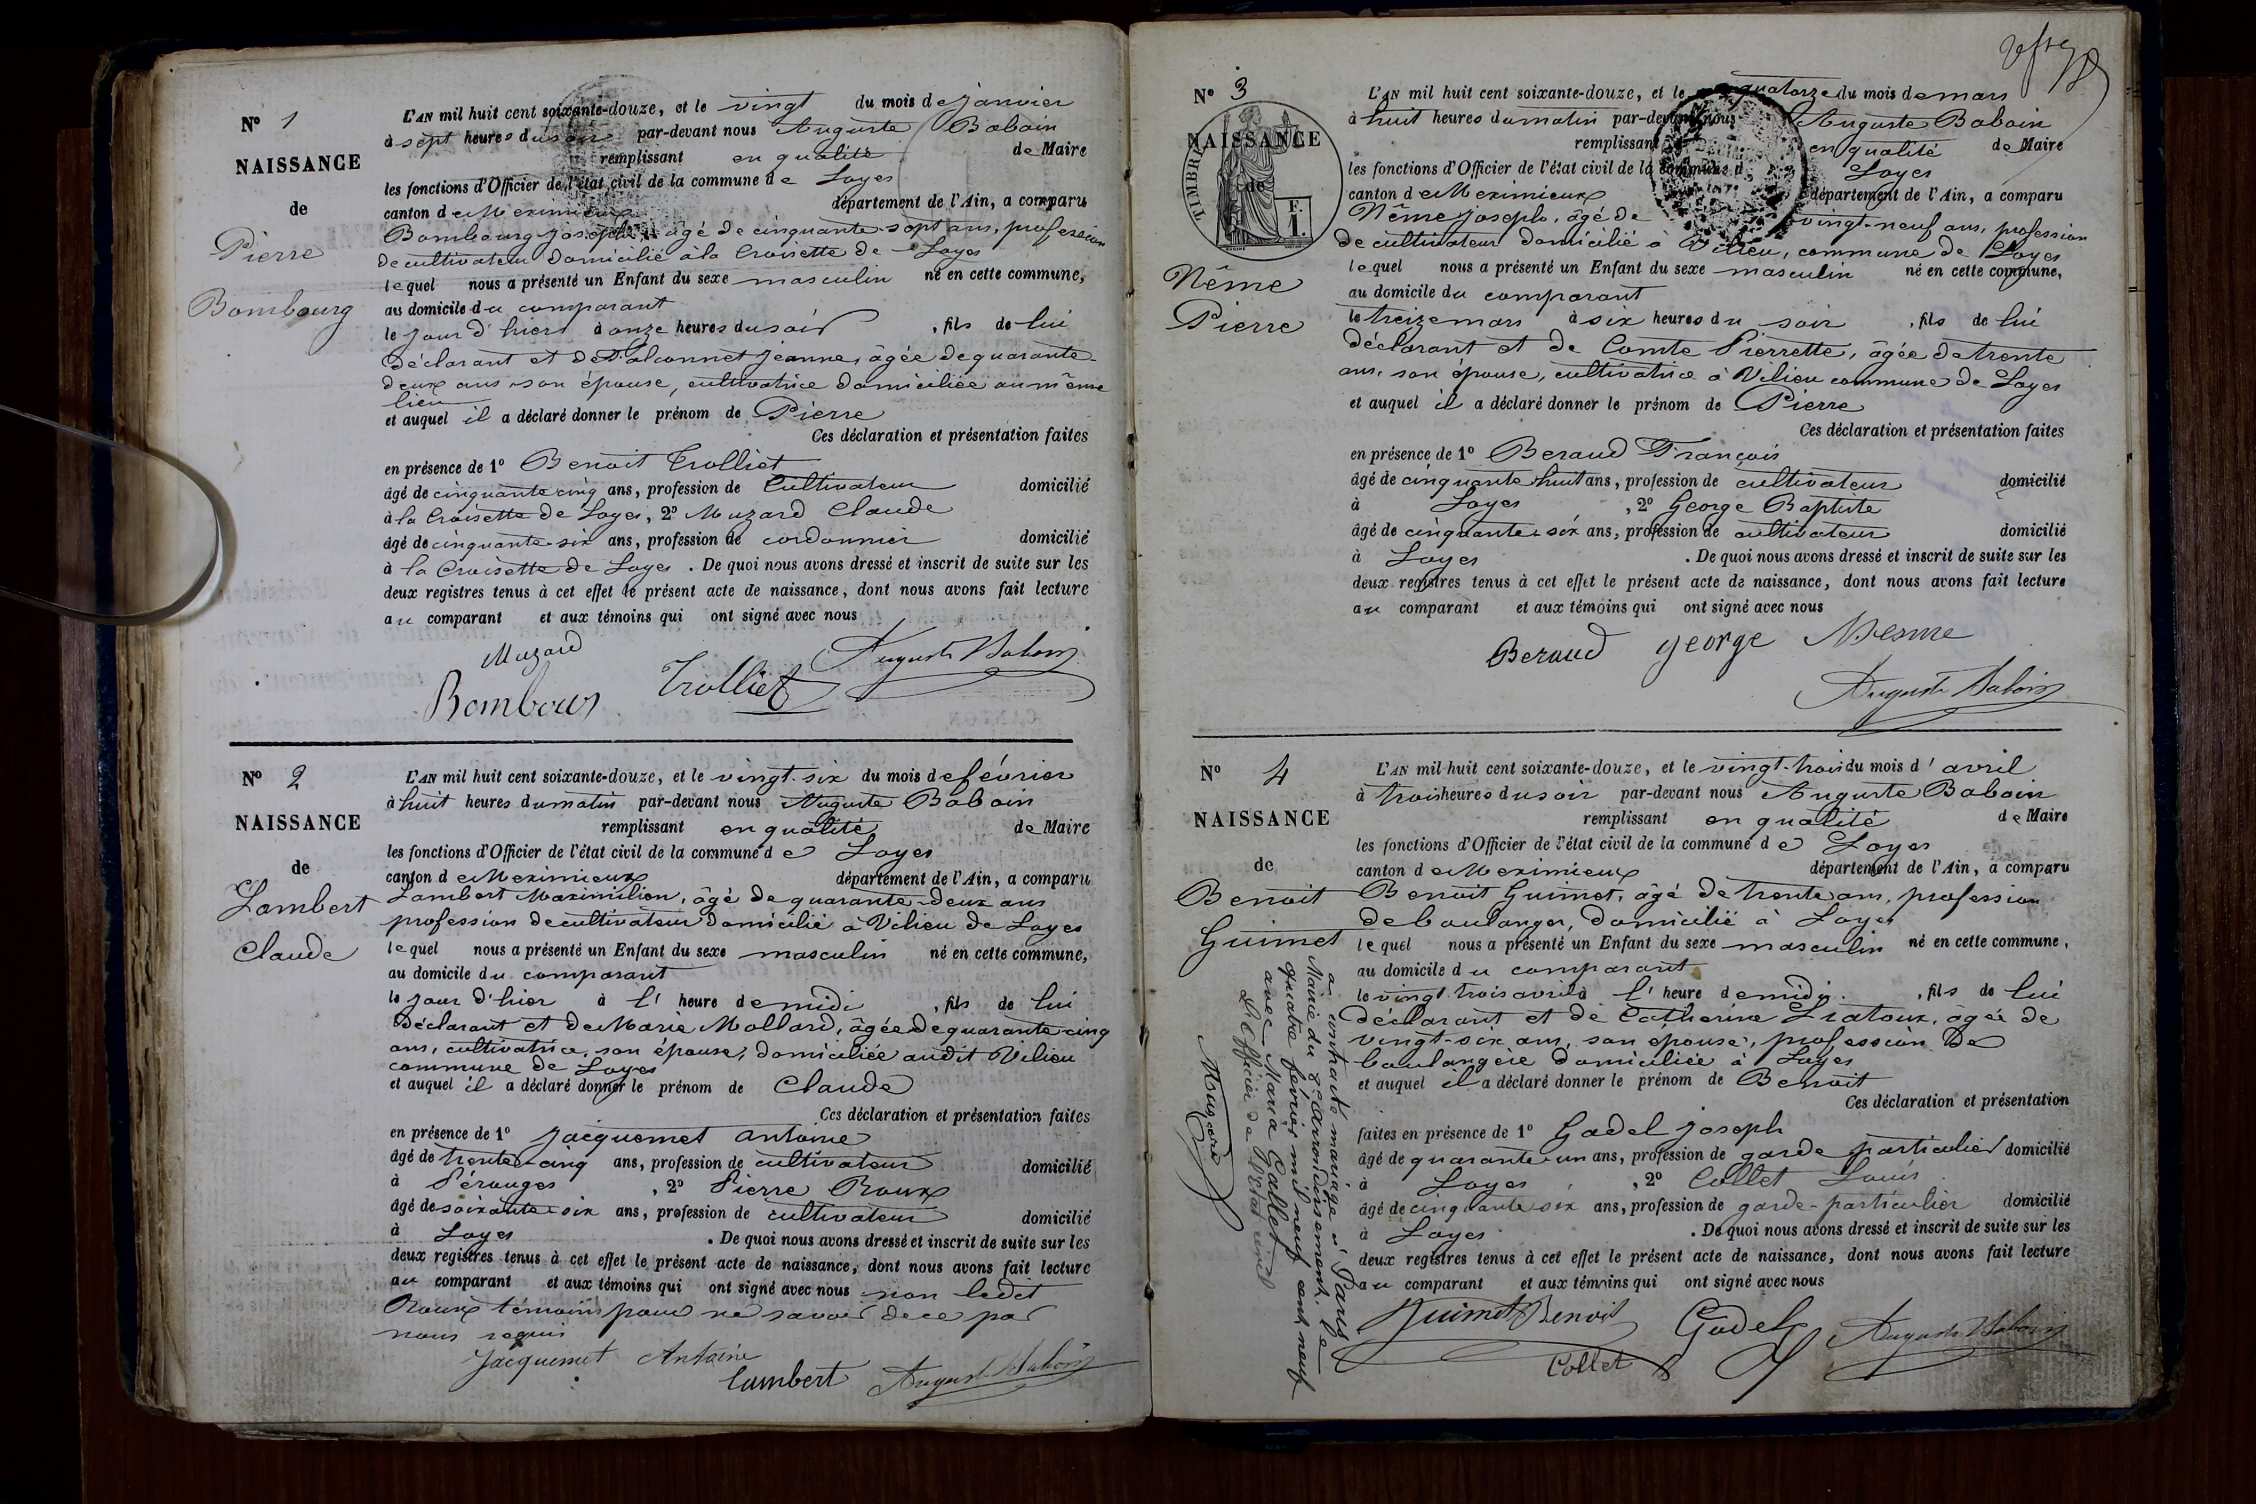 N° 1
NAISSANCE
de
Pierre
Bombourg
L'AN mil huit cent soixante-douze, et le vingt du mois de janvier
à sept heures du soir par-devant nous Auguste Baboin
remplissant en qualité de Maire
les fonctions d'Officier de l'état civil de la commune de Loyes
canton de Meximieux département de l'Ain, a comparu
Bombourg Joseph, âgé de cinquante-sept ans, profession
de cultivateur domicilié à la Croisette de Loyes
lequel nous a présenté un Enfant du sexe masculin né en cette commune,
au domicile du comparant
le jour d'hier à onze heures du soir, fils de lui
déclarant et de Falconnet Jeanne, âgée de quarante-
deux ans, son épouse, cultivatrice domiciliée au même
lieu
et auquel il a déclaré donner le prénom de Pierre
Ces déclaration et présentation faites
en présence de 1° Benoit Trolliet
âgé de cinquante cinq ans, profession de Cultivateur domicilié
à la Croisette de Loyes, 2° Muzard Claude
âgé de cinquante-six ans, profession de cordonnier domicilié
à la Croisette de Loyes. De quoi nous avons dressé et inscrit de suite sur les
deux registres tenus à cet effet le présent acte de naissance, dont nous avons fait lecture
au comparant et aux témoins qui ont signé avec nous
Muzard
Bombour Trolliet Auguste Baboin
N° 2
NAISSANCE
de
Lambert
Claude
L'AN mil huit cent soixante-douze, et le vingt-six du mois de février
à huit heures du matin par-devant nous Auguste Baboin
remplissant en qualité de Maire
les fonctions d'Officier de l'état civil de la commune de Loyes
canton de Meximieux département de l'Ain, a comparu
Lambert Maximilien, âgé de quarante-deux ans
profession de cultivateur domicilié à Vilieu de Loyes
lequel nous a présenté un Enfant du sexe masculin né en cette commune,
au domicile du comparant
le jour d'hier à l'heure de midi, fils de lui
déclarant et de Marie Mollard, âgée de quarante-cinq
ans, cultivatrice, son épouse, domiciliée audit Vilieu
commune de Loyes
et auquel il a déclaré donner le prénom de Claude
Ces déclaration et présentation faites
en présence de 1° Jacquemet antoine
âgé de trente-cinq ans, profession de cultivateur domicilié
à Pérouges, 2° Pierre Roux
âgé de soixante-six ans, profession de cultivateur domicilié
à Loyes. De quoi nous avons dressé et inscrit de suite sur les
deux registres tenus à cet effet le présent acte de naissance, dont nous avons fait lecture
au comparant et aux témoins qui ont signé avec nous non ledit
Roux témoin pour ne savoir de ce par
nous requis
Jacquemet Antoine
Lambert Auguste Baboin
N° 3
TIMBRE
F.
1.
NAISSANCE
de
Nême
Pierre
L'AN mil huit cent soixante-douze, et le quatorze du mois de mars
à huit heures du matin par-devant nous Auguste Baboin
remplissant en qualité de Maire
les fonctions d'Officier de l'état civil de la commune d Loyes
canton de Meximieux département de l'Ain, a comparu
Nême Joseph, âgé de vingt-neuf ans, profession
de cultivateur domicilié à Vilieu, commune de Loyes
lequel nous a présenté un Enfant du sexe masculin né en cette commune,
au domicile du comparant
le treize mars à six heures du soir, fils de lui
déclarant et de Comte Pierrette, âgée de trente
ans, son épouse, cultivatrice à Vilieu commune de Loyes
et auquel il a déclaré donner le prénom de Pierre
Ces déclaration et présentation faites
en présence de 1° Beraud François
âgé de cinquante huit ans, profession de cultivateur domicilié
à Loyes, 2° George Baptiste
âgé de cinquante-six ans, profession de cultivateur domicilié
à Loyes. De quoi nous avons dressé et inscrit de suite sur les
deux registres tenus à cet effet le présent acte de naissance, dont nous avons fait lecture
au comparant et aux témoins qui ont signé avec nous
Beraud george Nesme
Auguste Baboin
N° 4
NAISSANCE
de
Benoit
Guimet
L'AN mil huit cent soixante-douze, et le vingt-trois du mois d'avril
à trois heures du soir par-devant nous Auguste Baboin
remplissant en qualité de Maire
les fonctions d'Officier de l'état civil de la commune de Loyes
canton de Meximieux département de l'Ain, a comparu
Benoit Guimet, âgé de trente ans, profession
de boulanger, domicilié à Loyes
lequel nous a présenté un Enfant du sexe masculin né en cette commune,
au domicile du comparant
le vingt-trois avril à l'heure de midi, fils de lui
déclarant et de Catherine Liatoux, âgée de
vingt-six ans, son épouse, profession de
boulangère domiciliée à Loyes
et auquel il a déclaré donner le prénom de Benoit
Ces déclaration et présentation
faites en présence de 1° Gadel Joseph
âgé de quarante-un ans, profession de garde particulier domicilié
à Loyes, 2° Collet Louis
âgé de cinquante six ans, profession de garde-particulier domicilié
à Loyes. De quoi nous avons dressé et inscrit de suite sur les
deux registres tenus à cet effet le présent acte de naissance, dont nous avons fait lecture
au comparant et aux témoins qui ont signé avec nous
Guimet Benoit Gadel Auguste Baboin
Collet
a contracté mariage à Paris
Mairie du arrondissement, le
quatre février mil neuf cent neuf
avec Maria Gallet
L'Officier de l'Etat civil